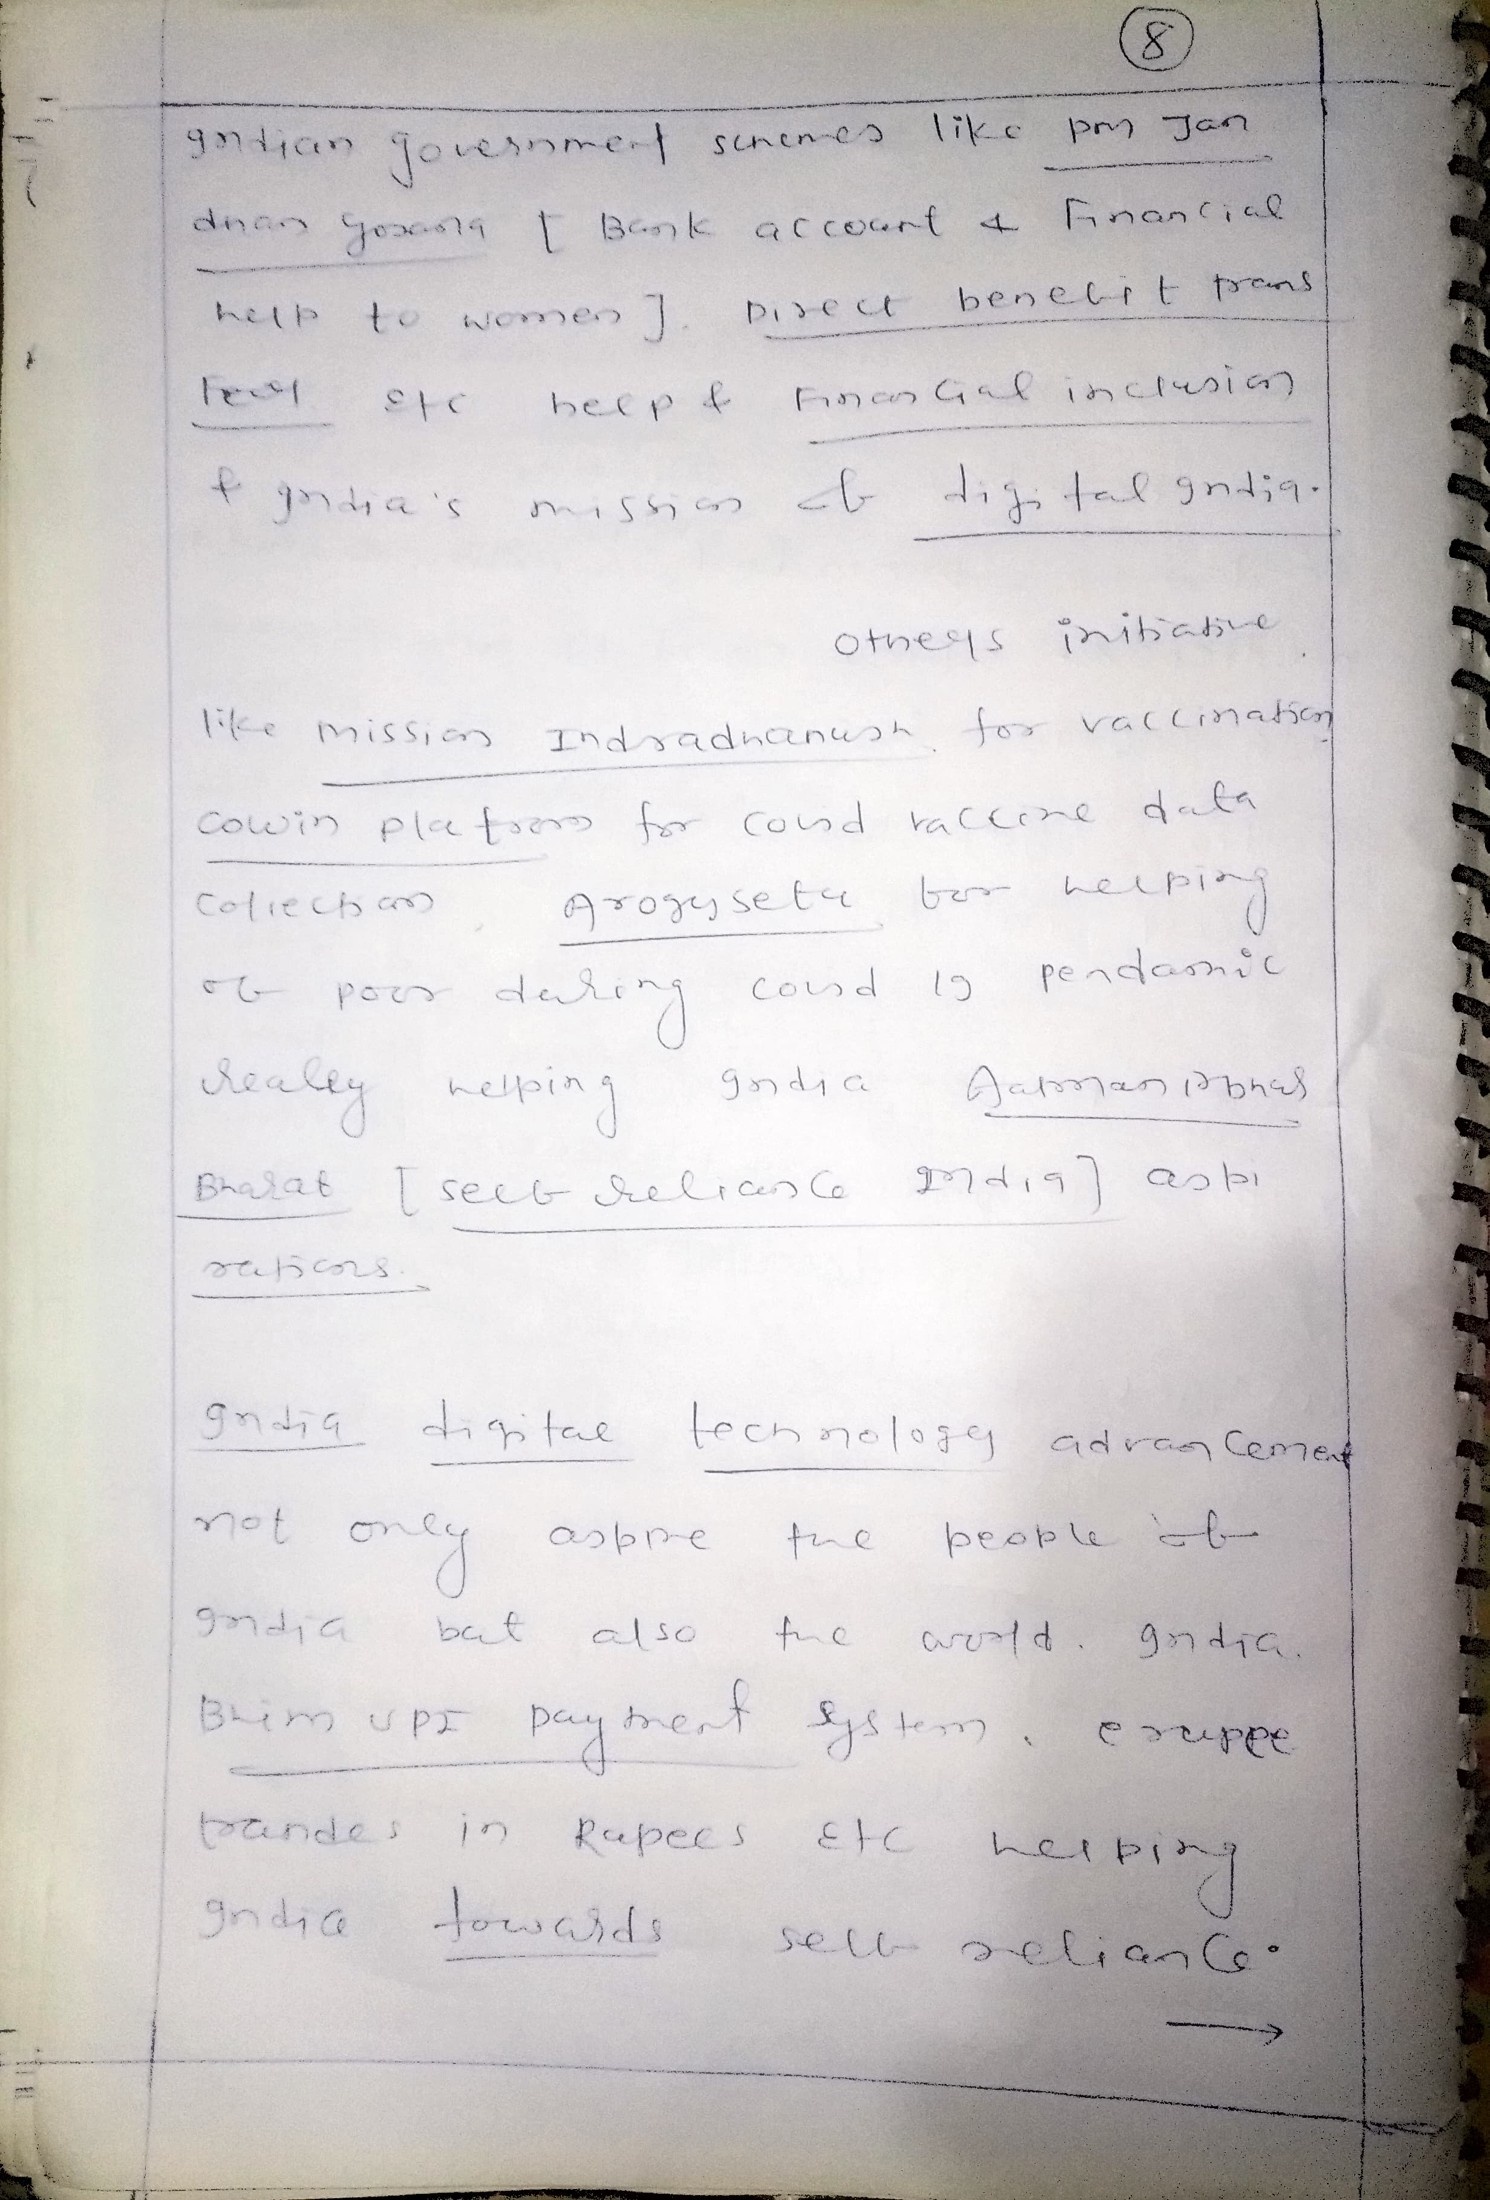 8
Indian government schemes like pm Jan
dhan Yojana [ Bank account & Financial
help to women ]. Direct benefit trans
etc help & Financial inclusion
& India's mission of digital India.
others initiative
like mission Indradhanush for vaccination
cowin platform for covid vaccine data
collection, Arogysetu for helping
of poor during covid 19 pendamic
realey helping India Aatmanirbhar
Bharat [ self reliance India ] aspi
rations.
India digital technology advancement
not only aspire the people of
India but also the world. India.
Bhim UPI payment system, e ruppe
trandes in Rupees etc helping
India towards self reliance.